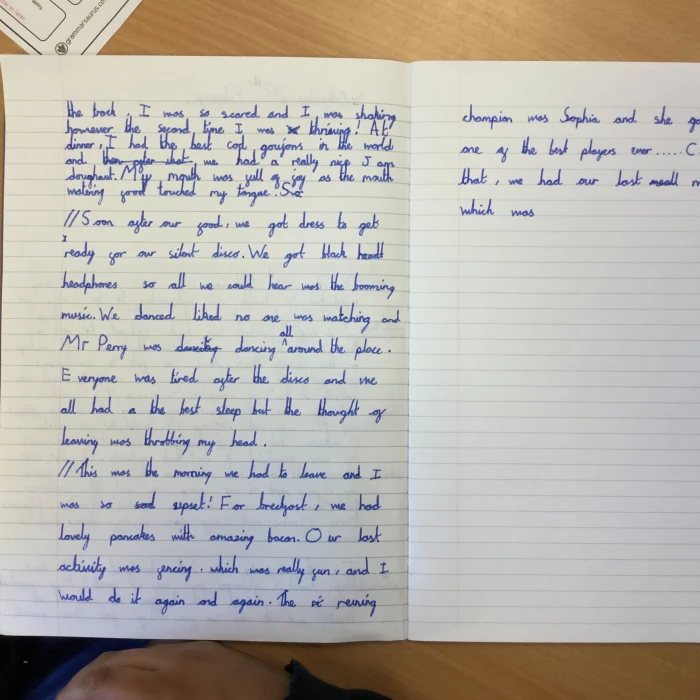 grammarsaurus.co
the track. I was so scared and I was shaking
however the second time I was thriving! At
dinner, I had the best cod goujons in the world
and then after that, we had a really nice Jam
doughnut. My mouth was full of joy as the mouth
watering food touched my tongue. So
//Soon after our food, we got dress to get
ready for our silent disco. We got black headt
headphones so all we could hear was the booming
music. We danced liked no one was watching and
Mr Perry was dancing dancing all around the place.
Everyone was tired after the disco and we
all had a the best sleep but the thought of
leaving was throbbing my head.
//This was the morning we had to leave and I
was so sad upset! For breckfast, we had
lovely pancakes with amazing bacon. Our last
activity was fencing. which was really fun, and I
would do it again and again. The re reining
champion was Sophia and she go
one of the best players ever..... C
that, we had our last meall m
which was